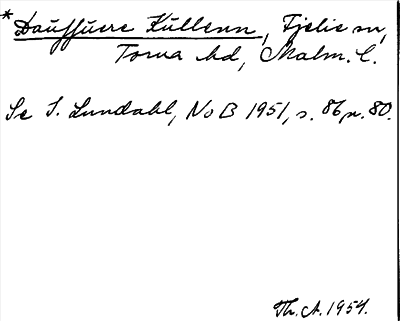 *Dauffuere Kullenn, Fjelie sn,
Torna hd, Malm. l.
Se I. Lundahl, NoB 1951, s. 86 n. 80.
Th. A. 1954.